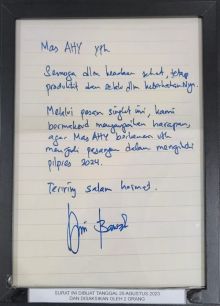 Mas AHY yph
Semoga dlm keadaan sehat, tetap
produktif dan selalu dlm keberkahan-Nya.
Melalui pesan singkat ini, kami
bermaksud menyampaikan harapan,
agar Mas AHY berkenan utk
menjadi pasangan dalam mengikuti
pilpres 2024.
Teriring salam hormat.
SURAT INI DIBUAT TANGGAL 25 AGUSTUS 2023
DAN DISAKSIKAN OLEH 2 ORANG